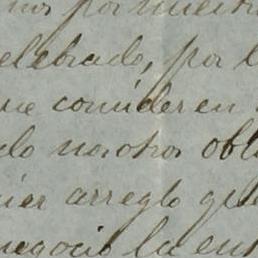 por nuestro
elebrado, por l
que consideren
do nosotros obl
uier arreglo que
negocio la ent